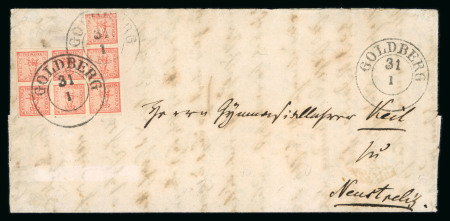 GOLDBERG
31
1
GOLDBERG
31
1
GOLDBERG
31
1
Herrn Gymnasiallehrer Keil
zu
Neustrelitz.